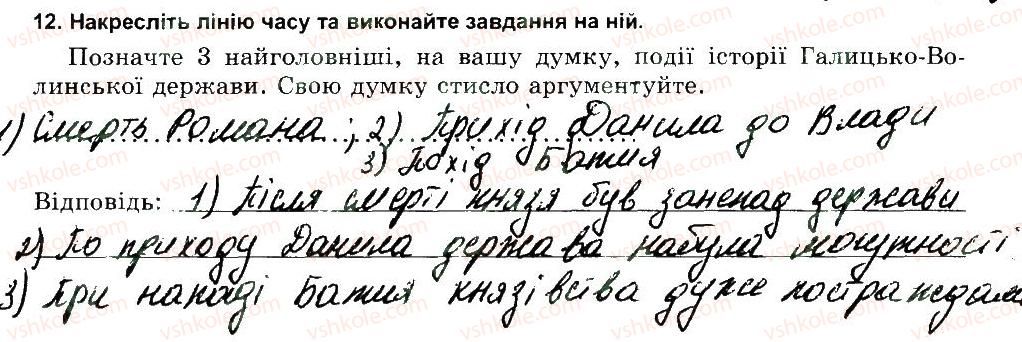 12. Накресліть лінію часу та виконайте завдання на ній.
Позначте 3 найголовніші, на вашу думку, події історії Галицько-Во-
линської держави. Свою думку стисло аргументуйте.
1) Смерть Романа; 2) Прихід Данила до влади
3) Похід Батия
Відповідь: 1) Після смерті князя був занепад держави
2) По приходу Данила держава набула могутності
3) При нападі Батия князівства дуже постраждали